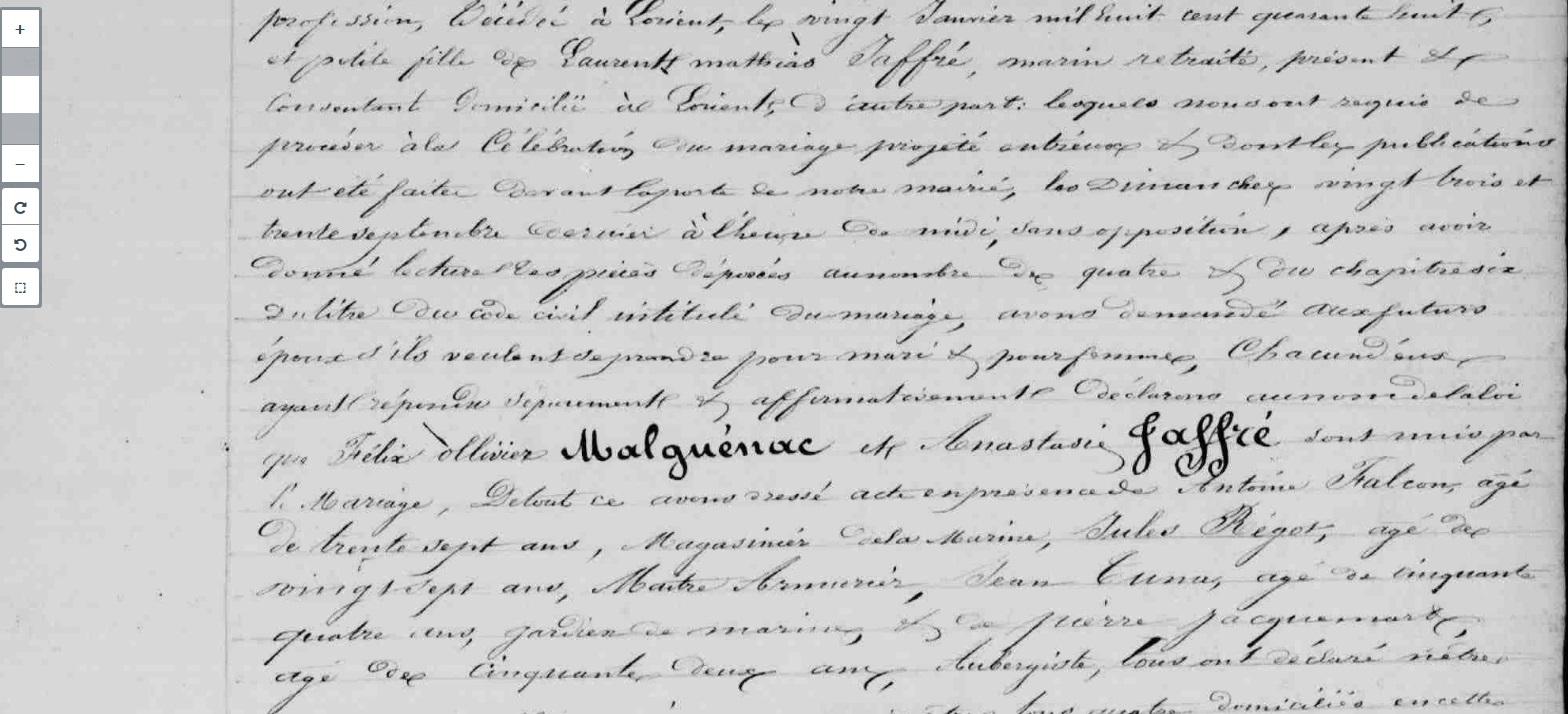 profession, Décédé à Lorient, le vingt Janvier mil huit cent quarante huit,
et petite fille de Laurent mathias Jaffré, marin retraité, présent &
Consentant Domicilié à Lorient, d'autre part: lesquels nous ont requis de
procéder à la Célébration du mariage projeté entr'eux & dont les publications
ont été faites devant la porte de notre mairie, les Dimanches vingt trois et
trente septembre dernier à l'heure de midi, sans opposition, après avoir
donné lecture des pièces déposées au nombre de quatre & du chapitre six
du titre du code civil intitulé du mariage, avons demandé aux futurs
époux s'ils veulent se prendre pour mari & pour femme, Chacun d'eux
ayant répondu séparement & affirmativement déclarons au nom de la loi
que Félix ollivier Malguénac et Anastasie Jaffré sont unis par
le Mariage, De tout ce avons dressé acte en présence de Antoine Falcon, agé
de trente sept ans, Magasinier de la Marine, Jules Régot, agé de
vingt sept ans, Maître Armurier, Jean Cuna, agé de cinquante
quatre ans, gardien de marine, & de pierre Jacquemart,
agé de cinquante deux ans, Aubergiste, tous ont déclaré n'être
tous quatre domiciliés en cette